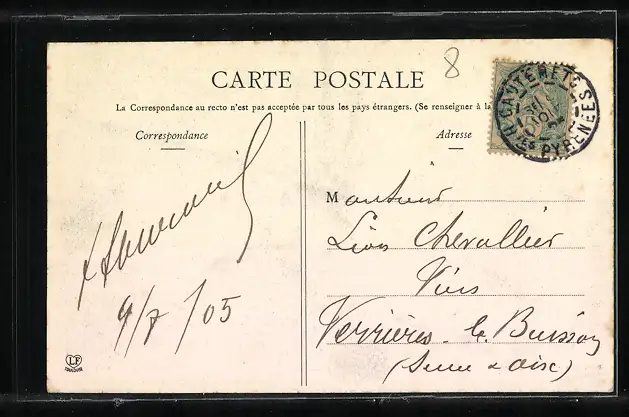 8
CARTE POSTALE
La Correspondance au recto n'est pas acceptée par tous les pays étrangers. (Se renseigner à la
Correspondance
Adresse
CAUTERETS
Htes PYRÉNÉES
Monsieur
Léon Chevallier
Vins
Verrières-le-Buisson
(Seine & Oise)
9/7/05
LF
TOULOUSE